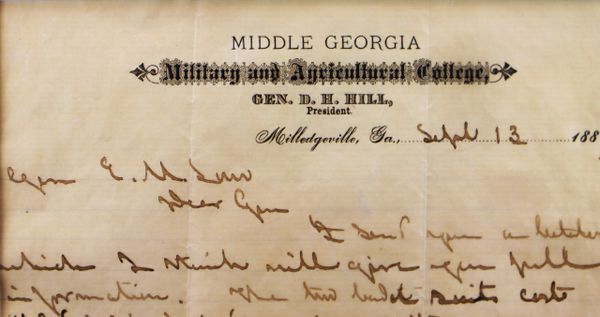 MIDDLE GEORGIA
Military and Agricultural College,
GEN. D. H. HILL,
President.
Milledgeville, Ga., Sept 13 188
Gen E. M.
Dear Gen
I send you a letter
which I think will give you full
information. The two suits cost